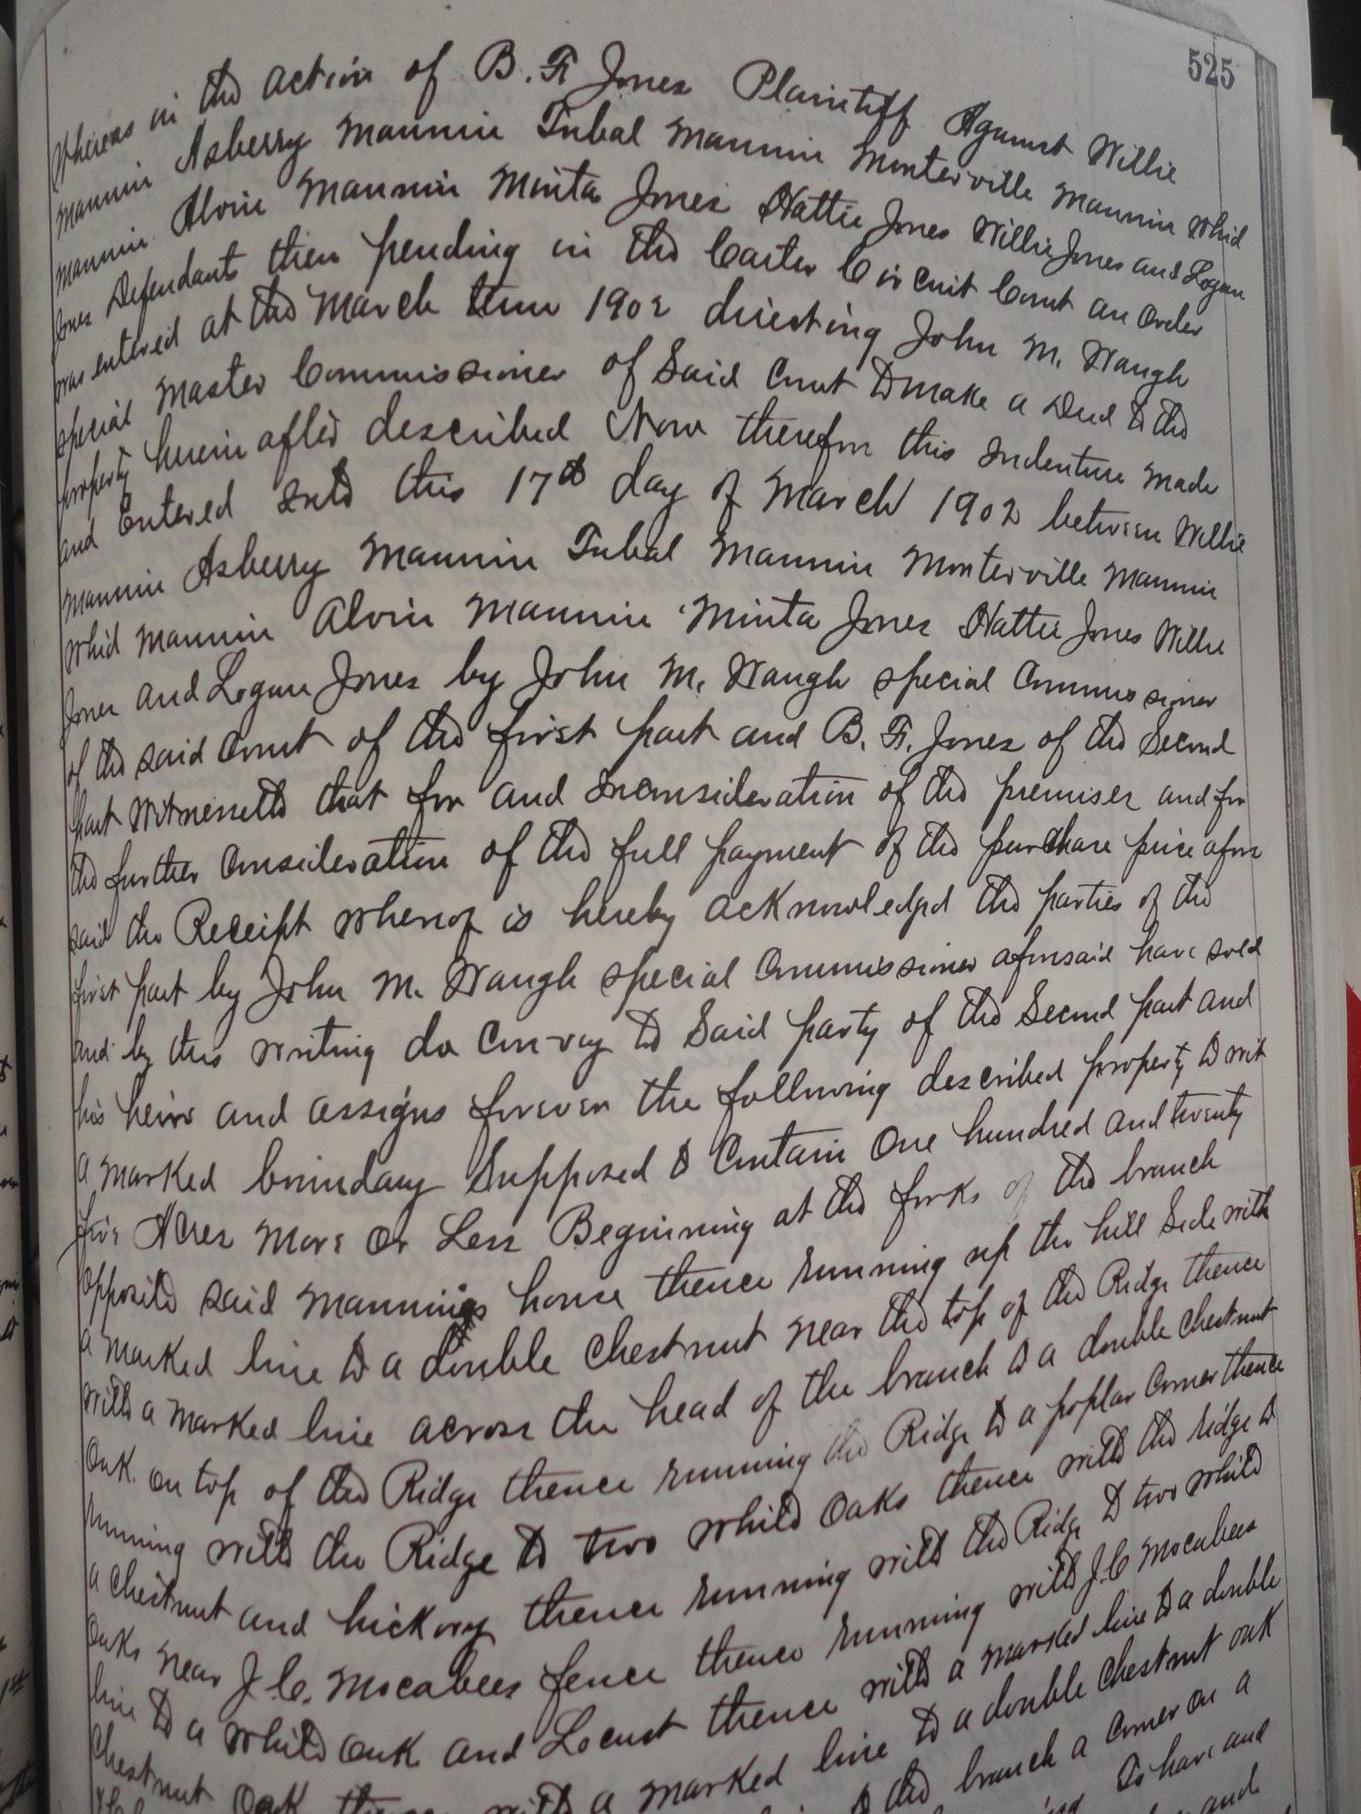 525
Whereas in the action of B. F. Jones Plaintiff Against Willie
Mannin Asberry Mannin Tubal Mannin Monterville Mannin Whid
Mannin Alvin Mannin Minta Jones Hattie Jones Willie Jones and Logan
Jones Defendants then pending in the Carter Circuit Court an Order
was entered at the March term 1902 directing John M. Waugh
special Master Commissioner of Said Court to make a Deed to the
property herein after described Now therefor this indenture made
and Entered into this 17th day of March 1902 between Willie
Mannin Asberry Mannin Tubal Mannin Monterville Mannin
Whid Mannin Alvin Mannin Minta Jones Hattie Jones Willie
Jones and Logan Jones by John M. Waugh special Commissioner
of the said Court of the first part and B. F. Jones of the Second
part Witnesseth that for and inconsideration of the premises and for
the further Consideration of the full payment of the purchase price afore
said the Receipt whereof is hereby acknowledged the parties of the
first part by John M. Waugh special Commissioner aforesaid have sold
and by this writing do Convay to Said party of the Second part and
his heirs and assigns forever the following described property to wit
a marked boundary Supposed to Contain One hundred and twenty
five Acres More or Less Beginning at the forks of the branch
opposite said Mannings house thence running up the hill Side with
a marked line to a double Chestnut near the top of the Ridge thence
with a marked line across the head of the branch to a double Chestnut
Oak on top of the Ridge thence running the Ridge to a poplar Corner thence
running with the Ridge to two white Oaks thence with the ridge to
a Chestnut and hickory thence running with the Ridge to two white
Oaks near J. C. Mocabees fence thence running with J. C. Mocabees
line to a white oak and Locust thence with a marked line to a double
Chestnut Oak with a marked line to a double Chestnut oak
the branch a Corner on a
To have and
and